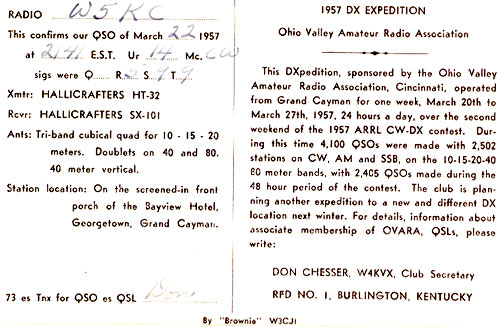 RADIO W5KC
This confirms our QSO of March 22 1957
at 2141 E.S.T. Ur 14 Mc. CW
sigs were Q R 5 S 9 T 9
Xmtr: HALLICRAFTERS HT-32
Rcvr: HALLICRAFTERS SX-101
Ants: Tri-band cubical quad for 10 - 15 - 20
meters. Doublets on 40 and 80.
40 meter vertical.
Station location: On the screened-in front
porch of the Bayview Hotel,
Georgetown, Grand Cayman.
73 es Tnx for QSO es QSL Don
1957 DX EXPEDITION
Ohio Valley Amateur Radio Association
This DXpedition, sponsored by the Ohio Valley
Amateur Radio Association, Cincinnati, operated
from Grand Cayman for one week, March 20th to
March 27th, 1957, 24 hours a day, over the second
weekend of the 1957 ARRL CW-DX contest. Dur-
ing this time 4,100 QSOs were made with 2,502
stations on CW, AM and SSB, on the 10-15-20-40
80 meter bands, with 2,405 QSOs made during the
48 hour period of the contest. The club is plan-
ning another expedition to a new and different DX
location next winter. For details, information about
associate membership of OVARA, QSLs, please
write:
DON CHESSER, W4KVX, Club Secretary
RFD NO. 1, BURLINGTON, KENTUCKY
By "Brownie" W3CJI